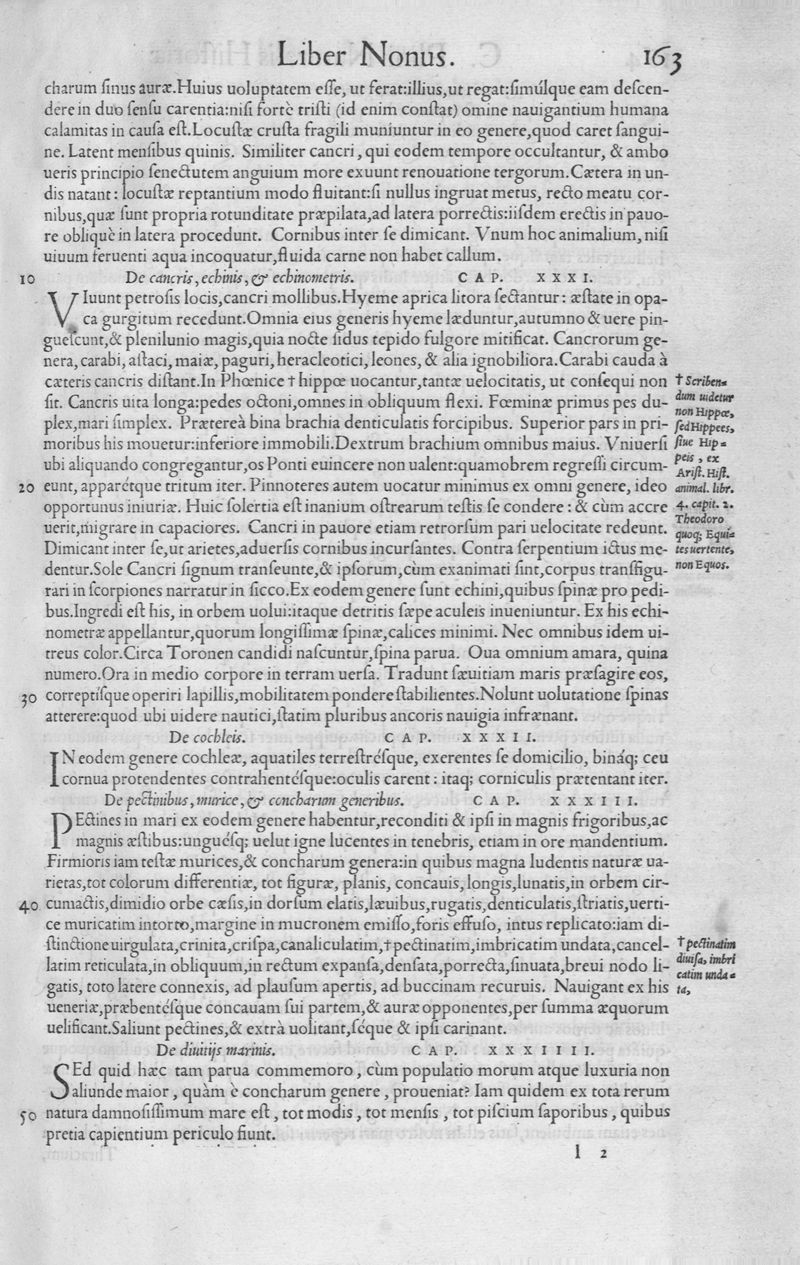 Liber Nonus. 163
charum ſinus auræ.Huius uoluptatem eſſe, ut ferat:illius,ut regat:ſimúlque eam deſcen-
dere in duo ſenſu carentia:niſi fortè triſti (id enim conſtat) omine nauigantium humana
calamitas in cauſa eſt.Locuſtæ cruſta fragili muniuntur in eo genere,quod caret ſangui-
ne. Latent menſibus quinis. Similiter cancri, qui eodem tempore occultantur, & ambo
ueris principio ſenectutem anguium more exuunt renouatione tergorum.Cætera in un-
dis natant: locuſtæ reptantium modo fluitant:ſi nullus ingruat metus, recto meatu cor-
nibus,quæ ſunt propria rotunditate præpilata,ad latera porrectis:iiſdem erectis in pauo-
re obliquè in latera procedunt. Cornibus inter ſe dimicant. Vnum hoc animalium, niſi
uiuum feruenti aqua incoquatur,fluida carne non habet callum.
10 De cancris, echinis, & echinometris. CAP. XXXI.
VIuunt petroſis locis,cancri mollibus.Hyeme aprica litora ſectantur: æſtate in opa-
ca gurgitum recedunt.Omnia eius generis hyeme læduntur,autumno & uere pin-
gueſcunt,& plenilunio magis,quia nocte ſidus tepido fulgore mitificat. Cancrorum ge-
nera, carabi, aſtaci, maiæ, paguri, heracleotici, leones, & alia ignobiliora.Carabi cauda à
cæteris cancris diſtant.In Phœnice † hippœ uocantur,tantæ uelocitatis, ut conſequi non
ſit. Cancris uita longa:pedes octoni,omnes in obliquum flexi. Fœminæ primus pes du-
plex,mari ſimplex. Prætereà bina brachia denticulatis forcipibus. Superior pars in pri-
moribus his mouetur:inferiore immobili.Dextrum brachium omnibus maius. Vniuerſi
ubi aliquando congregantur,os Ponti euincere non ualent:quamobrem regreſſi circum-
20 eunt, apparétque tritum iter. Pinnoteres autem uocatur minimus ex omni genere, ideo
opportunus iniuriæ. Huic ſolertia eſt inanium oſtrearum teſtis ſe condere: & cùm accre
uerit,migrare in capaciores. Cancri in pauore etiam retrorſum pari uelocitate redeunt.
Dimicant inter ſe,ut arietes,aduerſis cornibus incurſantes. Contra ſerpentium ictus me-
dentur.Sole Cancri ſignum tranſeunte,& ipſorum,cùm exanimati ſint,corpus tranſfigu-
rari in ſcorpiones narratur in ſicco.Ex eodem genere ſunt echini,quibus ſpinæ pro pedi-
bus.Ingredi eſt his, in orbem uolui:itaque detritis ſæpe aculeis inueniuntur. Ex his echi-
nometræ appellantur,quorum longiſſimæ ſpinæ,calices minimi. Nec omnibus idem ui-
treus color.Circa Toronen candidi naſcuntur,ſpina parua. Oua omnium amara, quina
numero.Ora in medio corpore in terram uerſa. Tradunt ſæuitiam maris præſagire eos,
30 correptiſque operiri lapillis,mobilitatem pondere ſtabilientes.Nolunt uolutatione ſpinas
atterere:quod ubi uidere nautici,ſtatim pluribus ancoris nauigia infrænant.
† Scriben-
dum uidetur
non Hippœ,
ſed Hippees,
ſiue Hip-
peis, ex
Ariſt. Hiſt.
animal. libr.
4. capit. 2.
Theodoro
quoq; Equi-
tes uertente,
non Equos.
De cochleis. CAP. XXXII.
IN eodem genere cochleæ, aquatiles terreſtréſque, exerentes ſe domicilio, bináq; ceu
cornua protendentes contrahentéſque:oculis carent: itaq; corniculis prætentant iter.
De pectinibus, murice, & concharum generibus. CAP. XXXIII.
PEctines in mari ex eodem genere habentur,reconditi & ipſi in magnis frigoribus,ac
magnis æſtibus:unguéſq; uelut igne lucentes in tenebris, etiam in ore mandentium.
Firmioris iam teſtæ murices,& concharum genera:in quibus magna ludentis naturæ ua-
rietas,tot colorum differentiæ, tot figuræ, planis, concauis, longis,lunatis,in orbem cir-
40 cumactis,dimidio orbe cæſis,in dorſum elatis,læuibus,rugatis,denticulatis,ſtriatis,uerti-
ce muricatim intorto,margine in mucronem emiſſo,foris effuſo, intus replicato:iam di-
ſtinctione uirgulata,crinita,criſpa,canaliculatim,†pectinatim,imbricatim undata,cancel-
latim reticulata,in obliquum,in rectum expanſa,denſata,porrecta,ſinuata,breui nodo li-
gatis, toto latere connexis, ad plauſum apertis, ad buccinam recuruis. Nauigant ex his
ueneriæ,præbentéſque concauam ſui partem,& auræ opponentes,per ſumma æquorum
uelificant.Saliunt pectines,& extrà uolitant,ſéque & ipſi carinant.
† pectinatim
diuiſa, imbri
catim unda-
ta,
De diuitijs marinis. CAP. XXXIIII.
SEd quid hæc tam parua commemoro, cùm populatio morum atque luxuria non
aliunde maior, quàm è concharum genere, proueniat? Iam quidem ex tota rerum
50 natura damnoſiſſimum mare eſt, tot modis, tot menſis, tot piſcium ſaporibus, quibus
pretia capientium periculo fiunt.
l 2